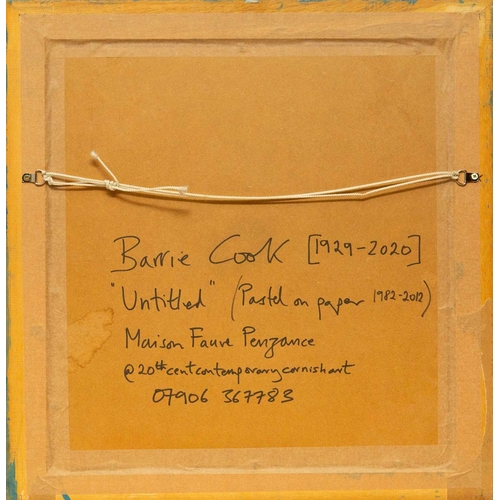 Barrie Cook [1929-2020]
"Untitled" (Pastel on paper 1982-2012)
Maison Faure Penzance
@20thcentcontemporarycornishart
07906 367783